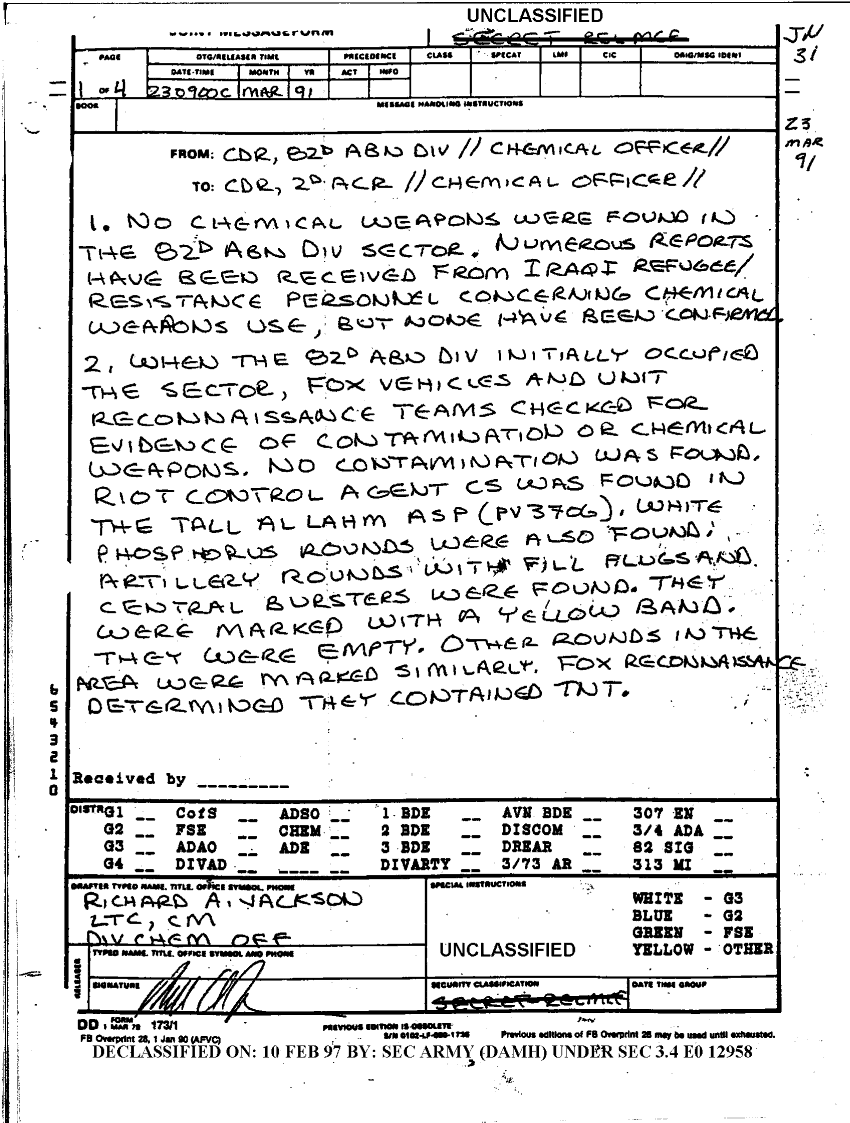 UNCLASSIFIED
JOINT MESSAGEFORM
SECRET RELMCE
JN
31
PAGE
DTG/RELEASER TIME
PRECEDENCE
CLASS
SPECAT
LMF
CIC
ORIG/MSG IDENT
DATE-TIME
MONTH
YR
ACT
INFO
1 OF 4
230900C
MAR
91
BOOK
MESSAGE HANDLING INSTRUCTIONS
23
MAR
91
FROM: CDR, 82D ABN DIV // CHEMICAL OFFICER//
TO: CDR, 2D ACR //CHEMICAL OFFICER//
1. NO CHEMICAL WEAPONS WERE FOUND IN
THE 82D ABN DIV SECTOR. NUMEROUS REPORTS
HAVE BEEN RECEIVED FROM IRAQI REFUGEE/
RESISTANCE PERSONNEL CONCERNING CHEMICAL
WEAPONS USE, BUT NONE HAVE BEEN CONFIRMED.
2. WHEN THE 82D ABN DIV INITIALLY OCCUPIED
THE SECTOR, FOX VEHICLES AND UNIT
RECONNAISSANCE TEAMS CHECKED FOR
EVIDENCE OF CONTAMINATION OR CHEMICAL
WEAPONS. NO CONTAMINATION WAS FOUND.
RIOT CONTROL AGENT CS WAS FOUND IN
THE TALL AL LAHM ASP (PV3706). WHITE
PHOSPHORUS ROUNDS WERE ALSO FOUND.
ARTILLERY ROUNDS WITH FILL PLUGS AND
CENTRAL BURSTERS WERE FOUND. THEY
WERE MARKED WITH A YELLOW BAND.
THEY WERE EMPTY. OTHER ROUNDS IN THE
AREA WERE MARKED SIMILARLY. FOX RECONNAISSANCE
DETERMINED THEY CONTAINED TNT.
6
5
4
3
2
1
0
Received by _________
DISTR G1 __ CofS __ ADSO __ 1 BDE __ AVN BDE __ 307 EN __
G2 __ FSE __ CHEM __ 2 BDE __ DISCOM __ 3/4 ADA __
G3 __ ADAO __ ADE __ 3 BDE __ DREAR __ 82 SIG __
G4 __ DIVAD __ ____ __ DIVARTY __ 3/73 AR __ 313 MI __
DRAFTER TYPED NAME, TITLE, OFFICE SYMBOL, PHONE
RICHARD A. JACKSON
LTC, CM
DIV CHEM OFF
SPECIAL INSTRUCTIONS
WHITE - G3
BLUE - G2
GREEN - FSE
YELLOW - OTHER
UNCLASSIFIED
RELEASER
TYPED NAME, TITLE, OFFICE SYMBOL AND PHONE
SIGNATURE
SECURITY CLASSIFICATION
SECRET RELMCE
DATE TIME GROUP
DD FORM 1 MAR 79 173/1
PREVIOUS EDITION IS OBSOLETE
S/N 0102-LF-000-1736
FB Overprint 28, 1 Jan 90 (AFVC)
Previous editions of FB Overprint 28 may be used until exhausted.
DECLASSIFIED ON: 10 FEB 97 BY: SEC ARMY (DAMH) UNDER SEC 3.4 E0 12958